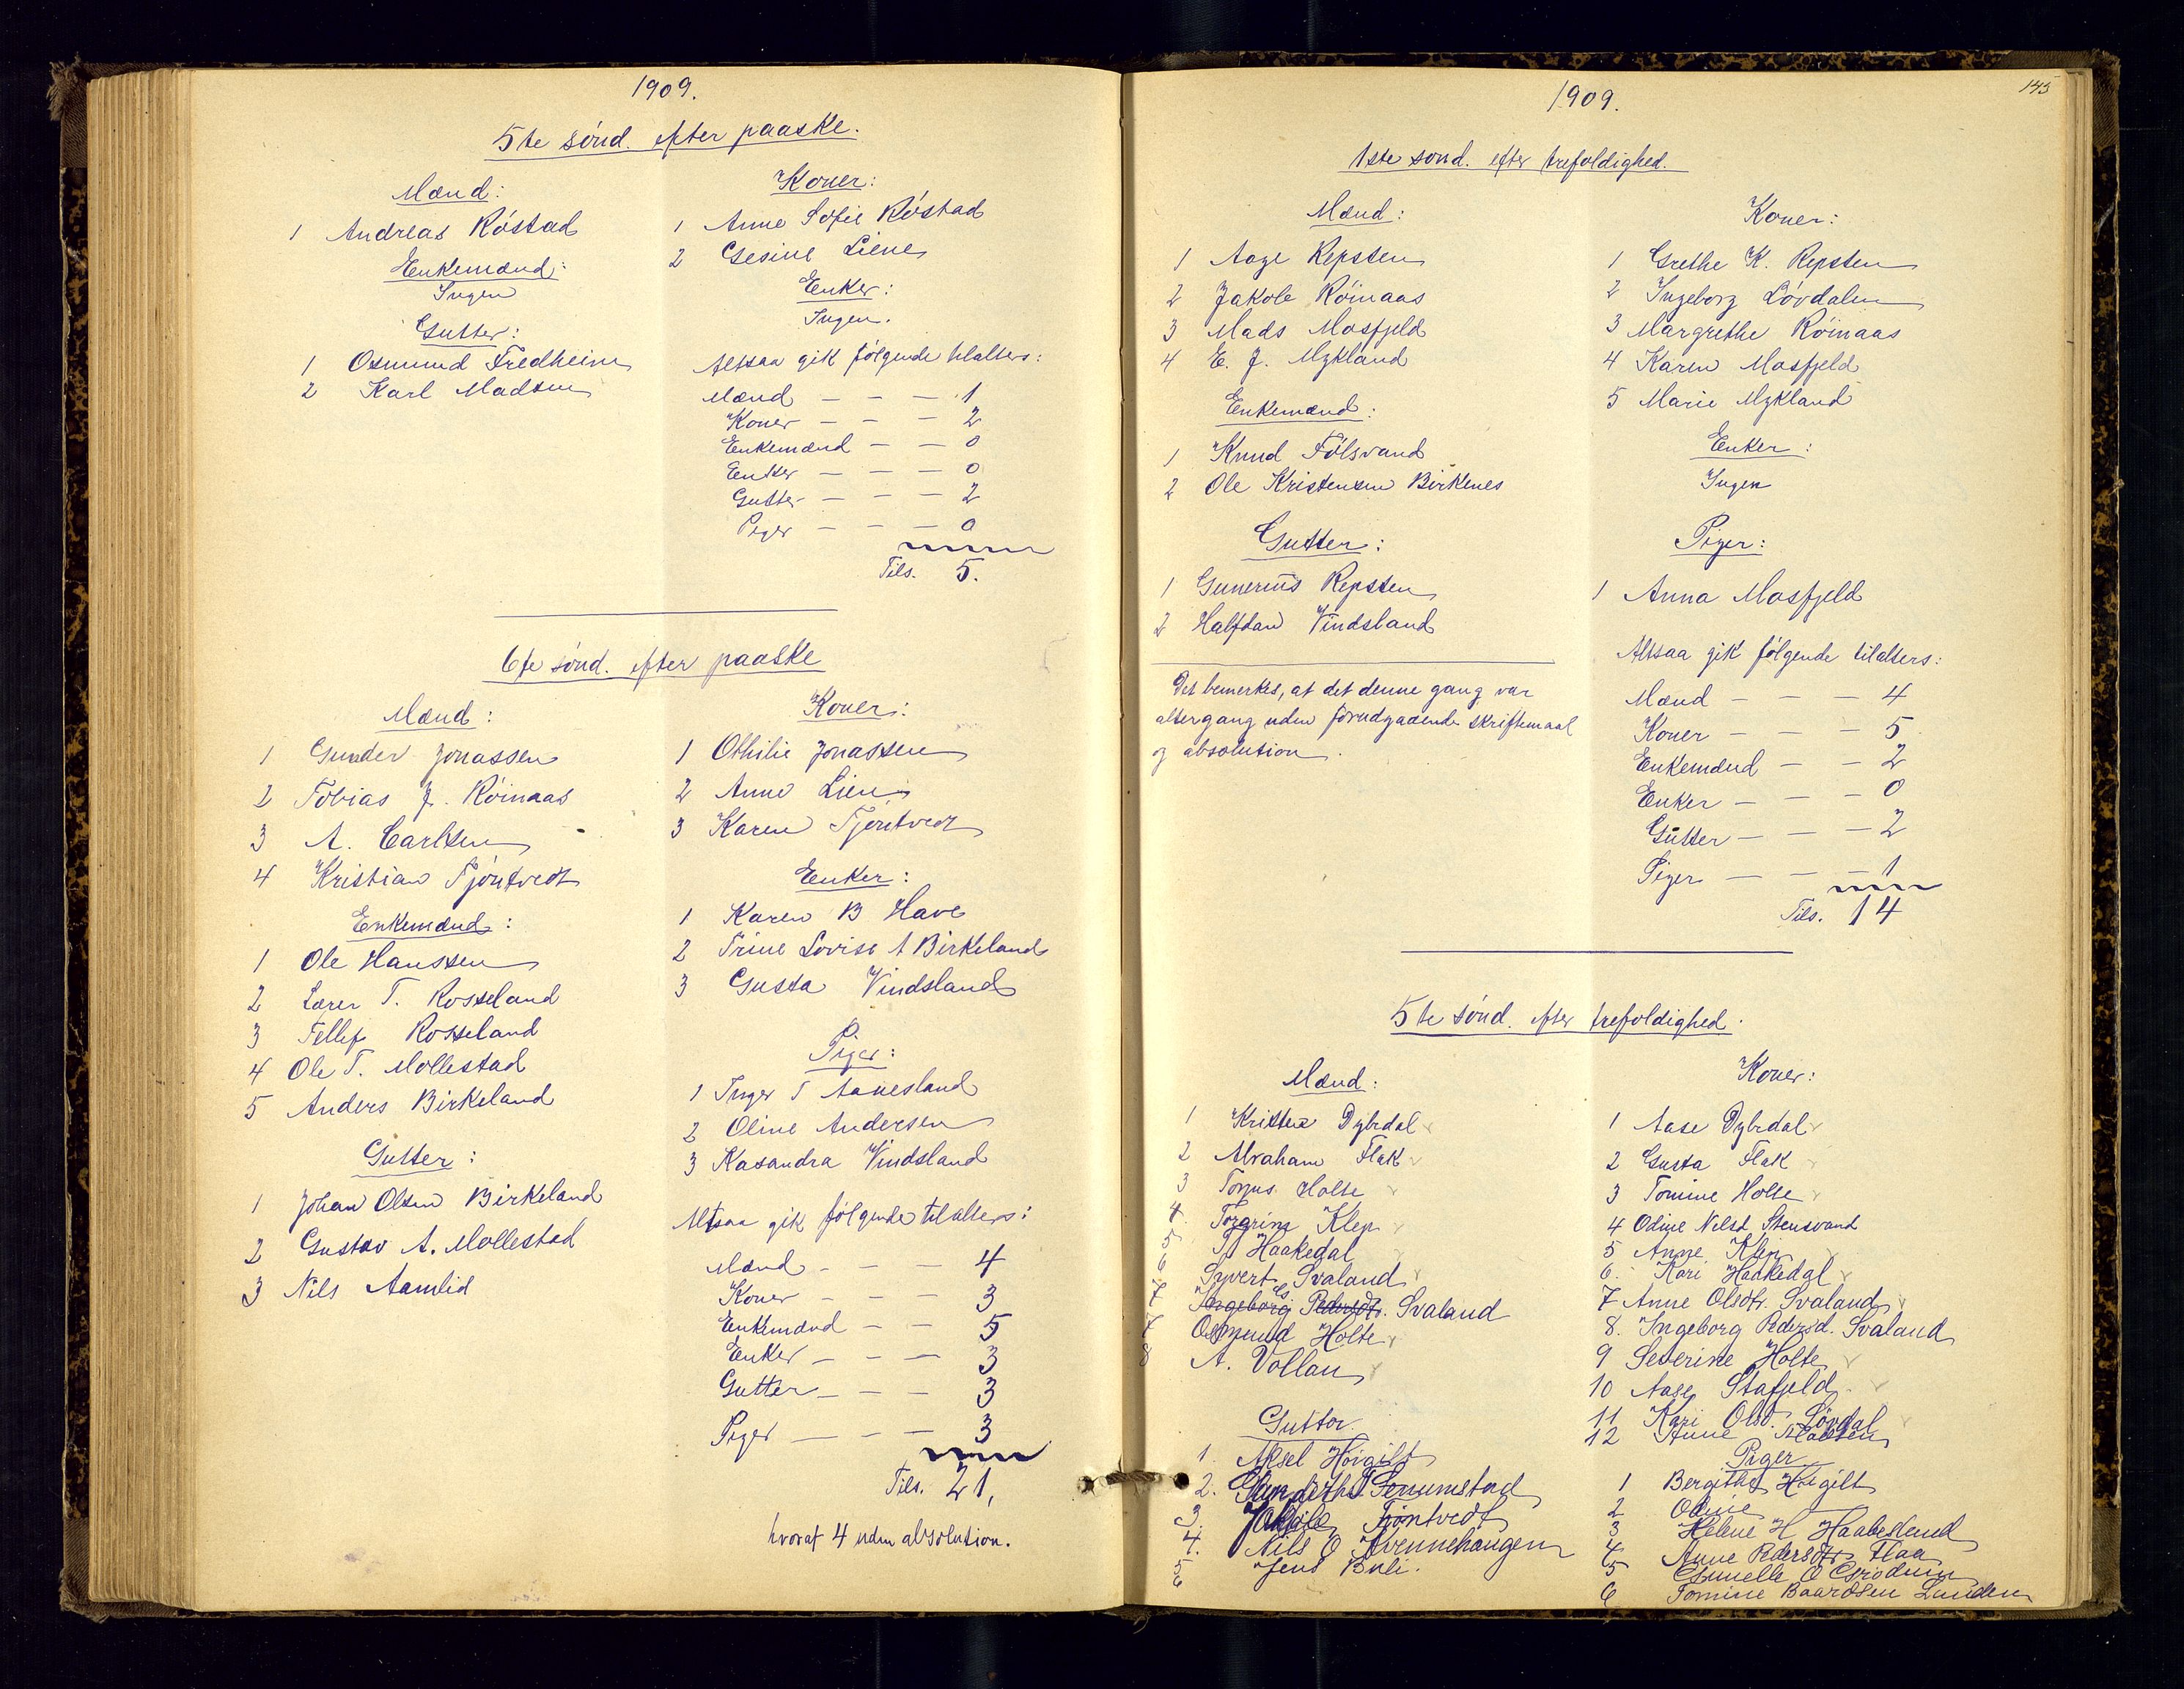 1909.
5te sönd. efter paaske.
Mænd:
1 Andreas Röstad
Enkemænd:
Ingen
Gutter:
1 Osmund Fredheim
2 Karl Madsen
Koner:
1 Anne Sofie Röstad
2 Gesine Liene
Enker:
Ingen.
Altsaa gik følgende tilalters:
Mænd — — — 1
Koner — — — 2
Enkemænd — — 0
Enker — — — 0
Gutter — — — 2
Piger — — — 0
Tils. 5.
6te sönd. efter paaske
Mænd:
1 Gunder Jonassen
2 Tobias J. Röinaas
3 A. Carlsen
4 Kristian Tjöntvedt
Enkemænd:
1 Ole Hanssen
2 Lærer T. Rosseland
3 Tellef Rosseland
4 Ole T. Mollestad
5 Anders Birkeland
Gutter:
1 Johan Olsen Birkeland
2 Gustav A. Mollestad
3 Nils Aamlid
Koner:
1 Othilie Jonassen
2 Anne Lien
3 Karen Tjöntvedt
Enker:
1 Karen B Have
2 Trine Lovise A Birkeland
3 Gusta Vindsland
Piger:
1 Inger T Aanesland
2 Oline Andersen
3 Kasandra Vindsland
Altsaa gik følgende tilalters:
Mænd — — — 4
Koner — — — 3
Enkemænd — — 5
Enker — — — 3
Gutter — — — 3
Piger — — — 3
Tils. 21,
hvoraf 4 uden absolution.
145
1909.
1ste sönd. efter trefoldighed.
Mænd:
1 Aage Repsten
2 Jakob Röinaas
3 Mads Mosfjeld
4 E. J. Mykland
Enkemænd:
1 Knud Fölsvand
2 Ole Kristensen Birkenes
Gutter:
1 Gunerius Repsten
2 Halfdan Vindsland
Det bemerkes, at det denne gang var
altergang uden forudgaaende skriftemaal
og absolution.
Koner:
1 Grethe K. Repsten
2 Ingeborg Lövdalen
3 Margrethe Röinaas
4 Karen Mosfjeld
5 Marie Mykland
Enker:
Ingen
Piger:
1 Anna Mosfjeld
Altsaa gik følgende tilalters:
Mænd — — — 4
Koner — — — 5
Enkemænd — — 2
Enker — — — 0
Gutter — — — 2
Piger — — — 1
Tils. 14
5te sönd. efter trefoldighed.
Mænd:
1 Kristen Dybdal
2 Abraham Flak
3 Holte
4. Torgrim Klep
5 T Haakedal
6 Syvert Svaland
7 Ingeborg Pedersdt. Svaland
7 Osmund Holte
8 A. Vollan
Gutter.
1. Aksel Høigilt
2. Senumstad
3. Jakob Tjöntvedt
4. Nils O Kvennehaugen
5 Jens Buli.
6
Koner:
1 Aase Dybdal
2 Gusta Flak
3 Tomine Holte
4 Odine Nelsd Stensvand
5 Anne Klep
6. Kari Haakedal
7 Anne Olsdtr. Svaland
8. Ingeborg Pedersd. Svaland
9 Severine Holte
10 Aase Stafjeld
11 Kari Olsd. Lövdal
12 Anne
Piger
1 Bergithe Høigilt
2 Oline
3 Helene H Haabesland
4 Anne Pedersdtr Flaa
5 Gunelle O
6 Tomine Baardsen Lunden